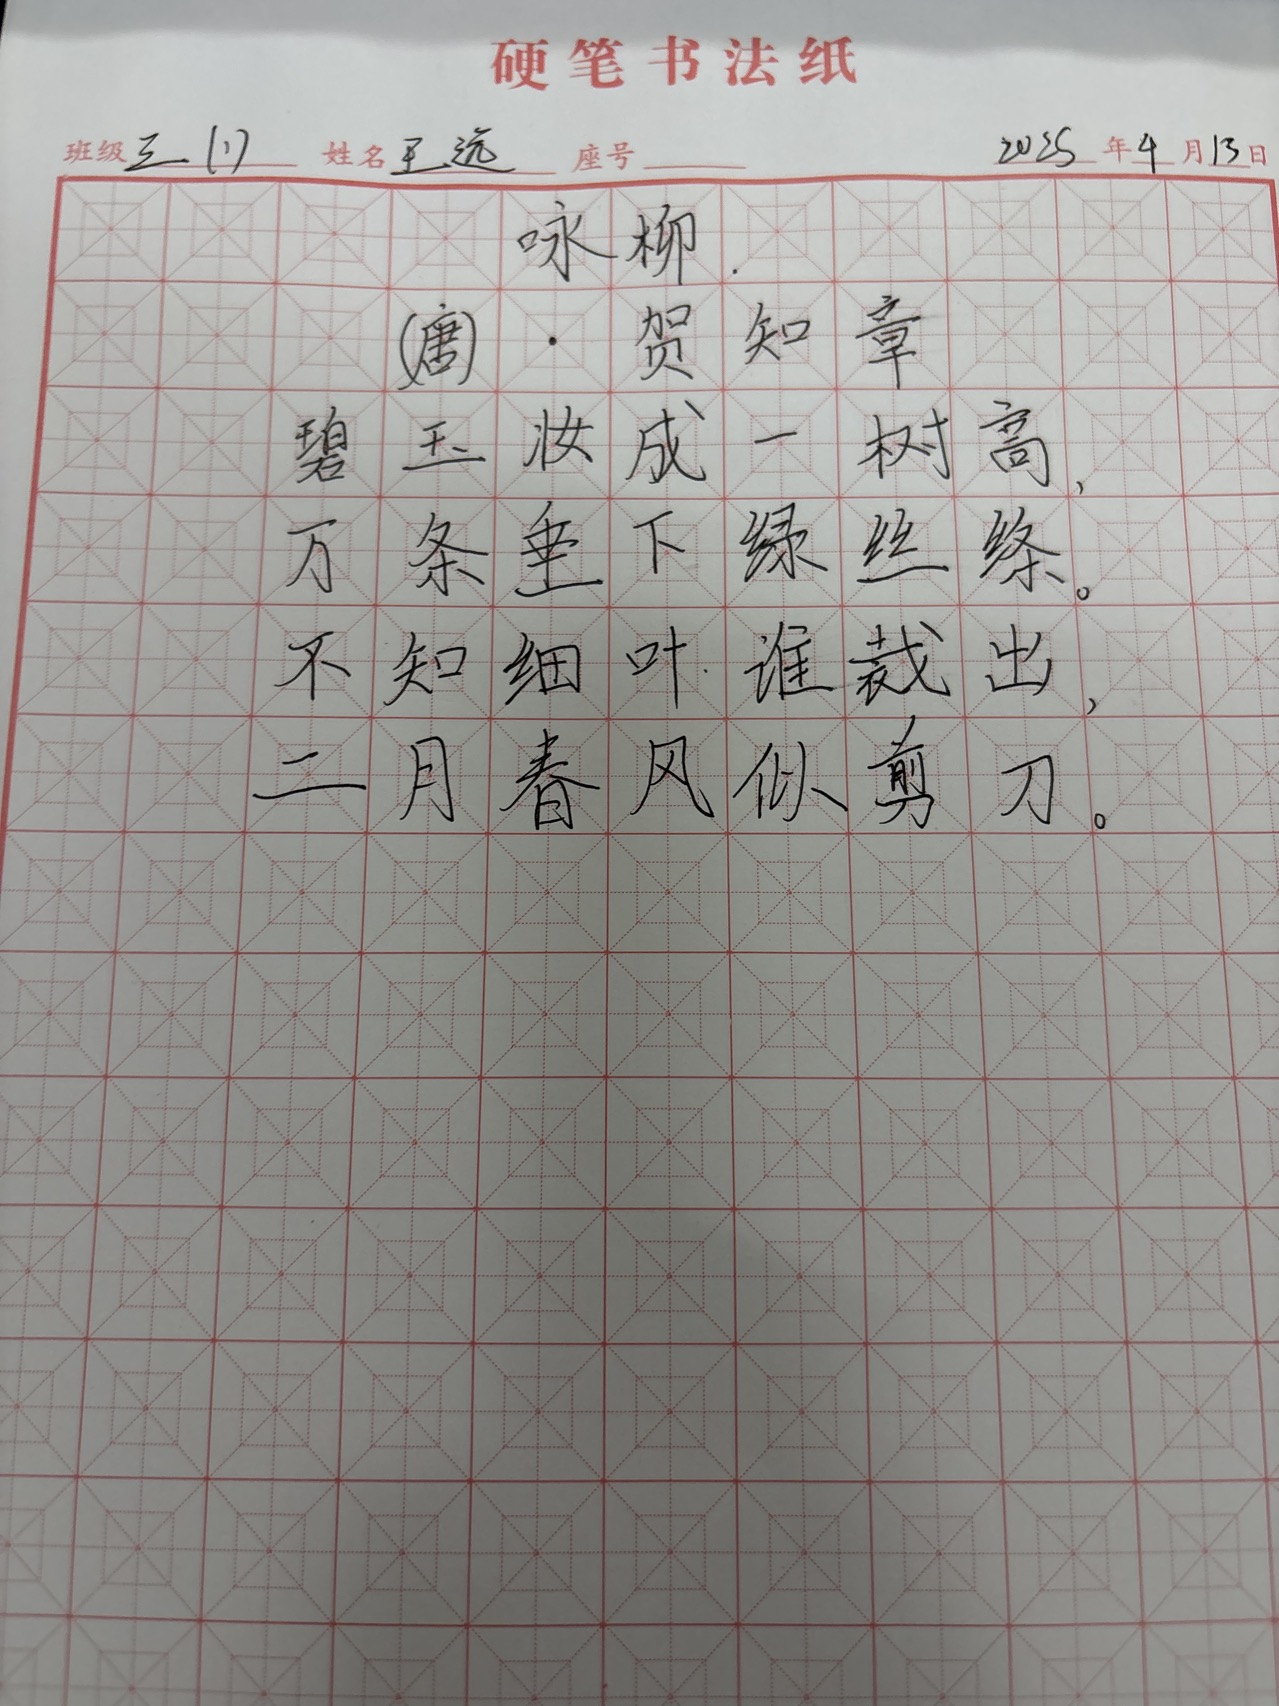 硬笔书法纸
班级 三(1) 姓名 王远 座号 2025年4月13日
咏柳.
(唐)·贺知章
碧玉妆成一树高,
万条垂下绿丝绦。
不知细叶谁裁出,
二月春风似剪刀。